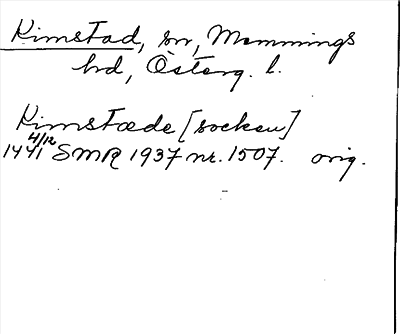 Kimstad, sn, Memmings
hd, Österg. l.
Kimstæde [socken]
4/12
1441 SMR 1937 nr. 1507. orig.